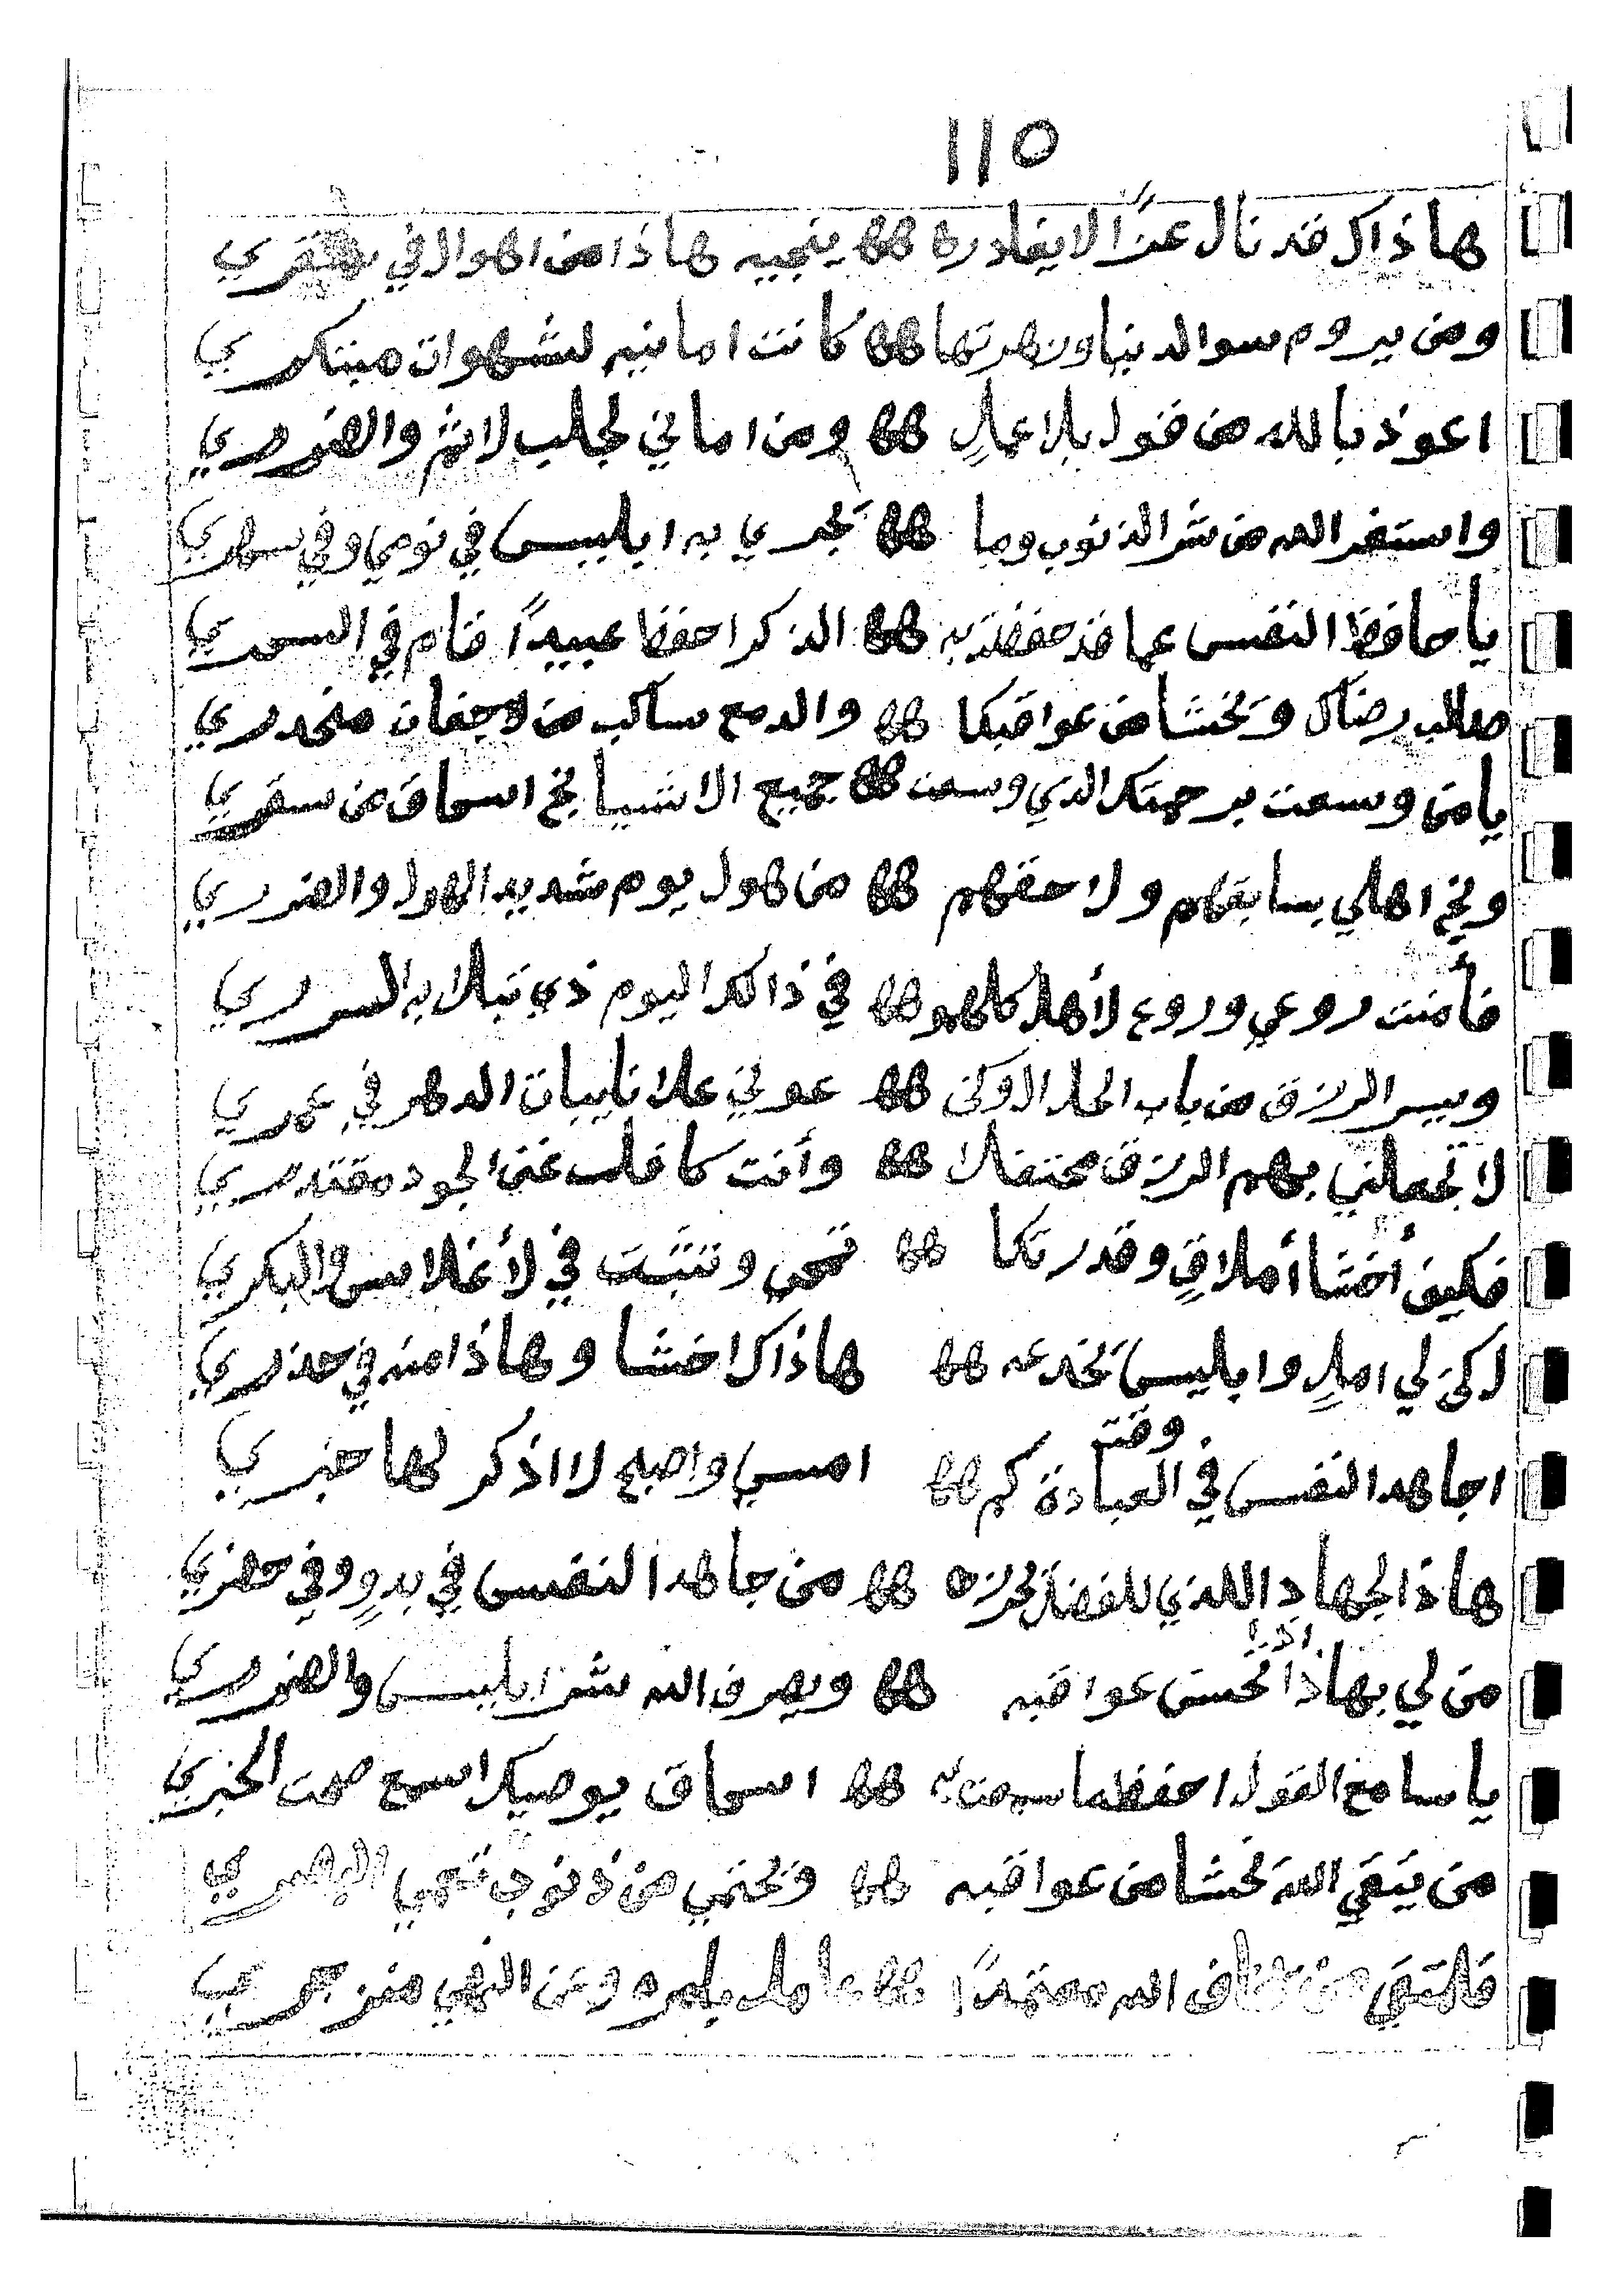 ١١٥
هاذاك قد نال عزًا لا يغادره هه ينجيه هاذا من اهوال في
ومن يروم سوا لدنيا وزهرتها هه كانت امانيه لشهوات مبتكري
اعوذ بالله من قول بلا عملٍ هه ومن اماني لجلب لاثم والضرري
واستغر الله من شر الذنوب وما هه تجري به ابليس في نومي وفي سهري
يا حافظ النفس عما قد حفظت به هه الذكر احفظ عبيداً قام في السحري
طالب رضاك ويخشا من عواقبكا هه والدمع ساكب من لاجفان منحدري
يا من وسعت برحمتك الذي وسعت هه جميع الاشيا نج اسحاق من سقري
ونج اهلي بسابقهم ولاحقهم هه من هول يوم شديد الهول والضرري
فأمنت روعي وروع لأهل كلهمو هه في ذالك اليوم ذي تبلا به السرري
ويسر الرزق من باب الحلال وكن هه عوني علا نايبات الدهر في عمري
لا تجعلني بهم الرزق محتفلا هه وأنت كافلت عن الجود مقتدري
فكيف أخشا أملاقٍ وقدرتكا هه تمحي وتثبت في لأغلاس والبكري
لكن لي املٍ وابليس تخدعه هه هاذاك اخشا وهاذا منه في حذري
اجاهد النفس في العبادة وقت كم هه امسي واصبح لا اذكر لها خبري
هاذ الجهاد اللذي للفضل تحرزه هه من جاهد النفس في بدوٍ وفي حضري
من لي بهاذا تحسن عواقبه هه ويصرف الله شر ابليس والضرري
يا سامع القول احفظ ما سمعت به هه اسحاق يوصيك اسمع صحت الخبري
من يتقي الله تخشا من عواقبه هه وتحتمي من ذنوب تعمي البصري
فلمتقي من خاف الله معتمداً هه عامل بامره وعن النهي منزجري